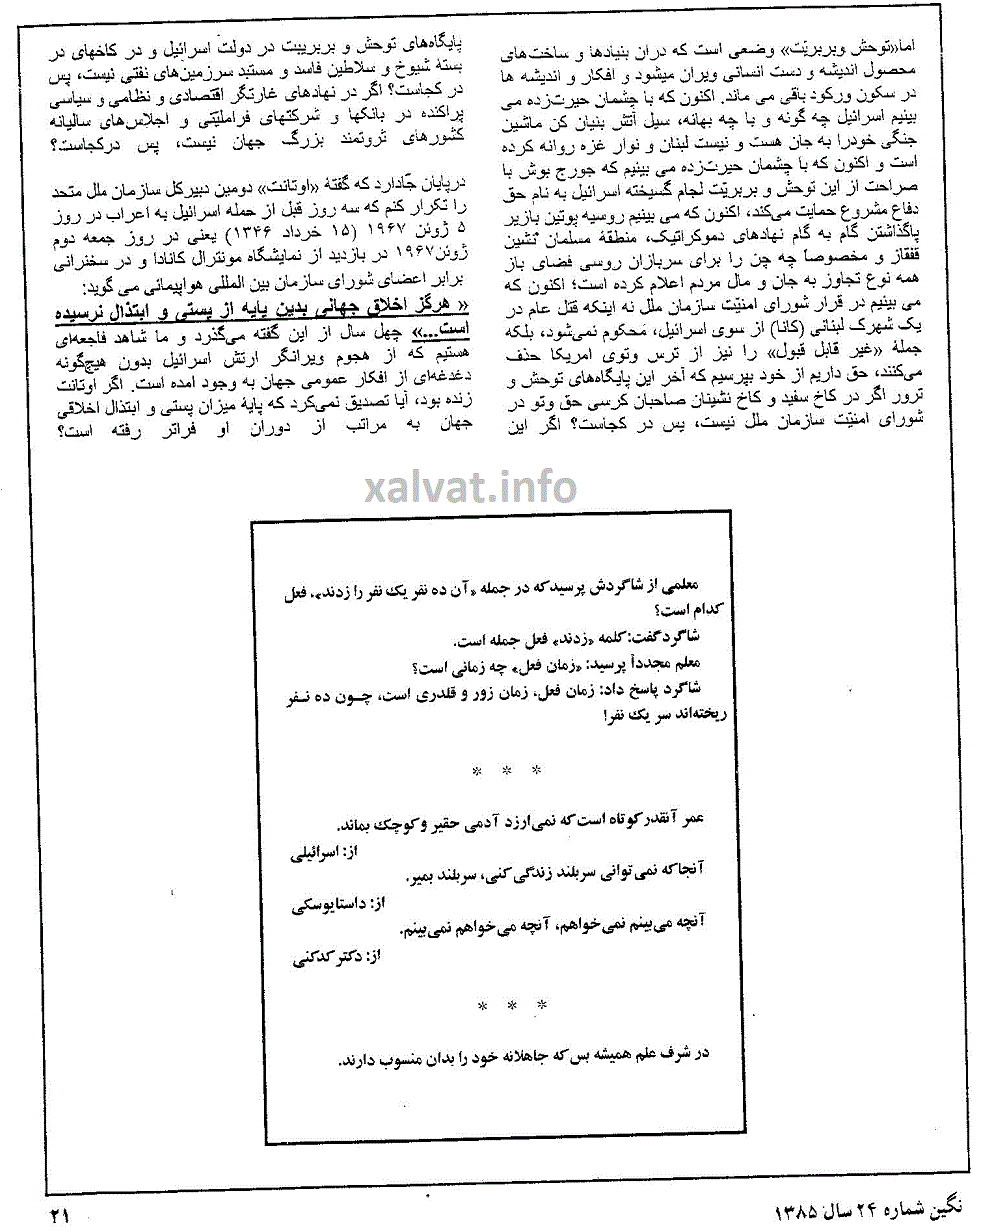 اما«توحش وبربریّت» وضعی است که دران بنیادها و ساخت‌های
محصول اندیشه و دست انسانی ویران میشود و افکار و اندیشه ها
در سکون ورکود باقی می ماند. اکنون که با چشمان حیرت‌زده می
بینیم اسرائیل چه گونه و با چه بهانه، سیل آتش بنیان کن ماشین
جنگی خودرا به جان هست و نیست لبنان و نوار غزه روانه کرده
است و اکنون که با چشمان حیرت‌زده می بینیم که جورج بوش با
صراحت از این توحش و بربریّت لجام گسیخته اسرائیل به نام حق
دفاع مشروع حمایت می‌کند، اکنون که می بینیم روسیه پوتین بازیر
پاگذاشتن گام به گام نهادهای دموکراتیک، منطقهٔ مسلمان نشین
قفقاز و مخصوصاً چه چن را برای سربازان روسی فضای باز
همه نوع تجاوز به جان و مال مردم اعلام کرده است؛ اکنون که
می بینیم در قرار شورای امنیّت سازمان ملل نه اینکه قتل عام در
یک شهرک لبنانی (کانا) از سوی اسرائیل، محکوم نمی‌شود، بلکه
جملهٔ «غیر قابل قبول» را نیز از ترس وتوی امریکا حذف
می‌کنند، حق داریم از خود بپرسیم که آخر این پایگاه‌های توحش و
ترور اگر در کاخ سفید و کاخ نشینان صاحبان کرسی حق وتو در
شورای امنیّت سازمان ملل نیست، پس در کجاست؟ اگر این
پایگاه‌های توحش و بربریت در دولت اسرائیل و در کاخهای در
بستهٔ شیوخ و سلاطین فاسد و مستبد سرزمین‌های نفتی نیست، پس
در کجاست؟ اگر در نهادهای غارتگر اقتصادی و نظامی و سیاسی
پراکنده در بانکها و شرکتهای فراملیّتی و اجلاس‌های سالیانه
کشورهای ثروتمند بزرگ جهان نیست، پس درکجاست؟
درپایان جادارد که گفتهٔ «اوتانت» دومین دبیرکل سازمان ملل متحد
را تکرار کنم که سه روز قبل از حمله اسرائیل به اعراب در روز
۵ ژوئن ۱۹۶۷ (۱۵ خرداد ۱۳۴۶) یعنی در روز جمعه دوم
ژوئن۱۹۶۷ در بازدید از نمایشگاه مونترال کانادا و در سخنرانی
برابر اعضای شورای سازمان بین المللی هواپیمائی می گوید:
« هرگز اخلاق جهانی بدین پایه از پستی و ابتذال نرسیده
است...» چهل سال از این گفته می‌گذرد و ما شاهد فاجعه‌ای
هستیم که از هجوم ویرانگر ارتش اسرائیل بدون هیچ‌گونه
دغدغه‌ای از افکار عمومی جهان به وجود امده است. اگر اوتانت
زنده بود، آیا تصدیق نمی‌کرد که پایهٔ میزان پستی و ابتذال اخلاقی
جهان به مراتب از دوران او فراتر رفته است؟
xalvat.info
معلمی از شاگردش پرسید که در جمله «آن ده نفر یک نفر را زدند»، فعل
کدام است؟
شاگرد گفت: کلمه «زدند» فعل جمله است.
معلم مجدداً پرسید: «زمان فعل» چه زمانی است؟
شاگرد پاسخ داد: زمان فعل، زمان زور و قلدری است، چــون ده نــفر
ریخته‌اند سر یک نفر!
* * *
عمر آنقدر کوتاه است که نمی‌ارزد آدمی حقیر و کوچک بماند.
از: اسرائیلی
آنجا که نمی‌توانی سربلند زندگی کنی، سربلند بمیر.
از: داستایوسکی
آنچه می‌بینم نمی‌خواهم، آنچه می‌خواهم نمی‌بینم.
از: دکتر کدکنی
* * *
در شرف علم همیشه بس که جاهلانه خود را بدان منسوب دارند.
نگین شماره ۲۴ سال ۱۳۸۵
۲۱